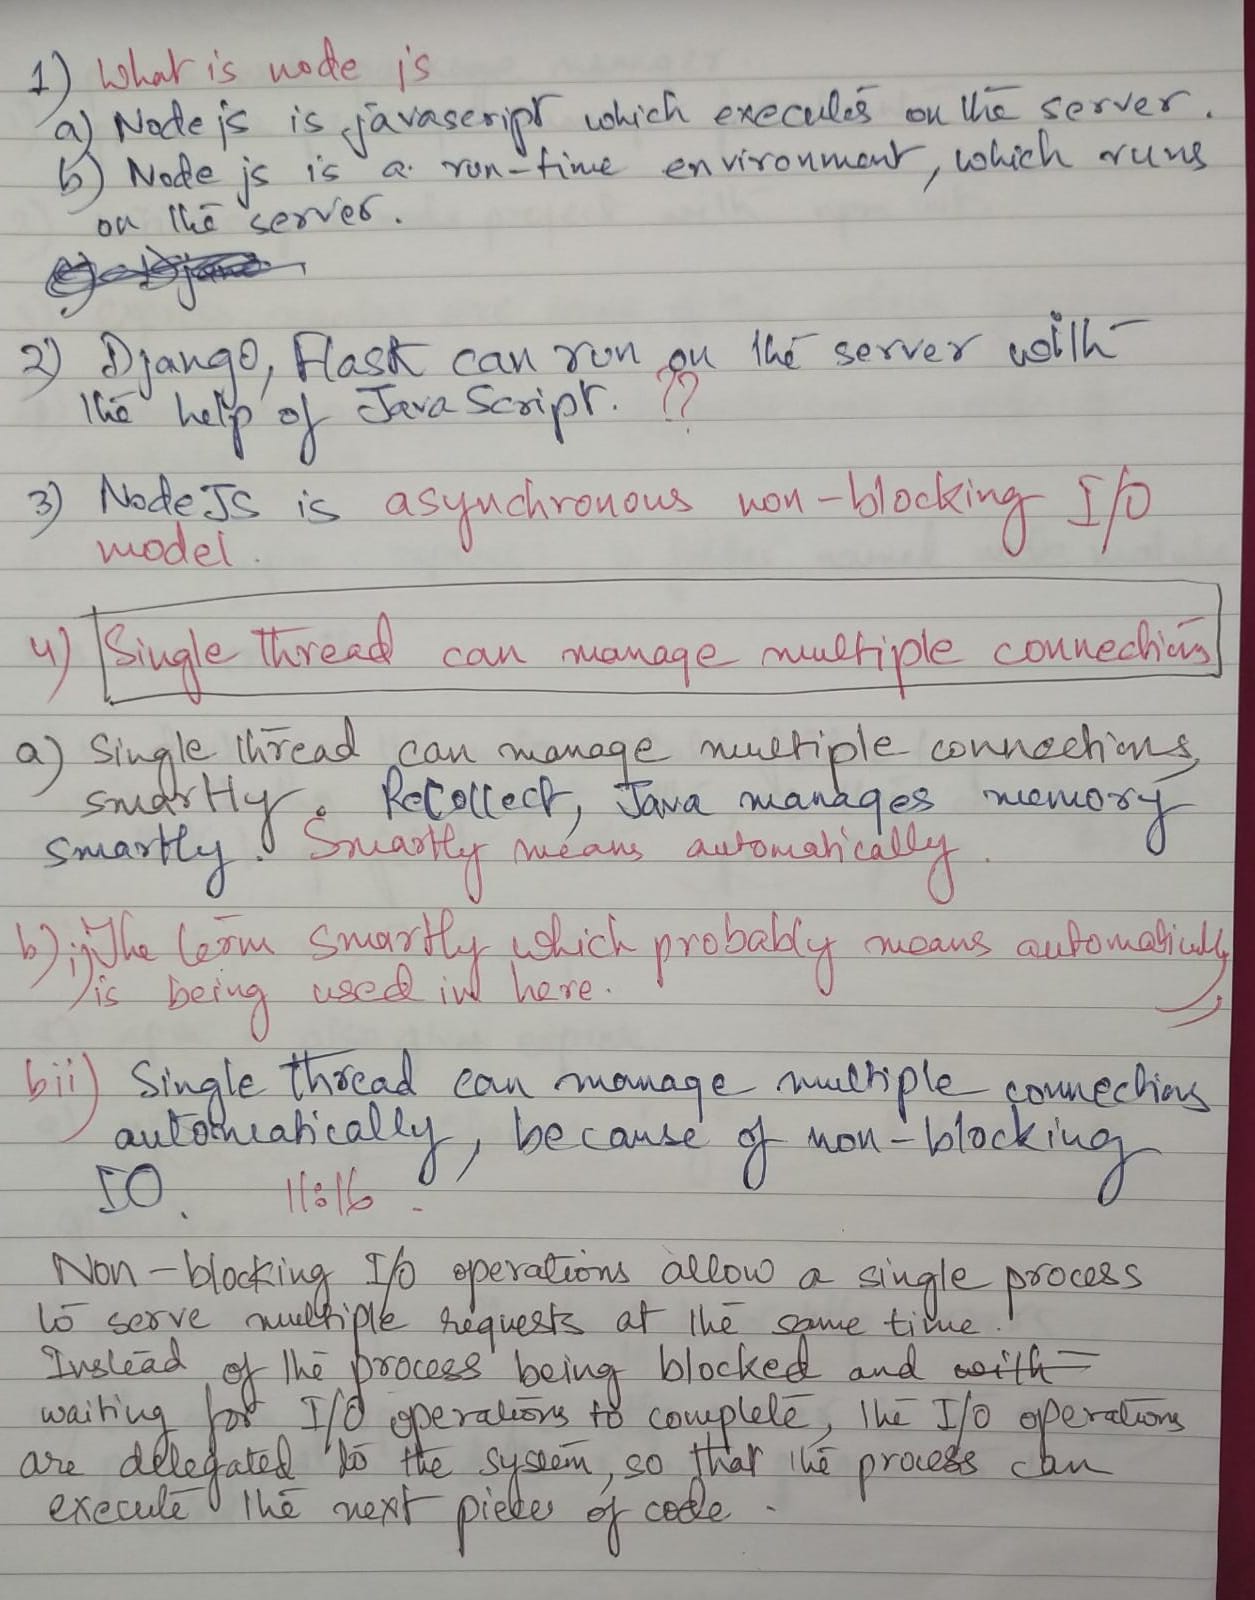 1) What is node js
a) Node js is javascript which executes on the server.
b) Node js is a run-time environment, which runs
on the server.
2) Django, Flask can run on the server with
the help of JavaScript. ??
3) NodeJS is asynchronous non-blocking I/O
model.
4) Single thread can manage multiple connections
a) Single thread can manage multiple connections
smartly. Recollect, Java manages memory
smartly. Smartly means automatically.
b)i) The term smartly which probably means automatically
is being used in here.
bii) Single thread can manage multiple connections
automatically, because of non-blocking
IO. 11:16.
Non-blocking I/O operations allow a single process
to serve multiple requests at the same time.
Instead of the process being blocked and with
waiting for I/O operations to complete, the I/O operations
are delegated to the system, so that the process can
execute the next piece of code.